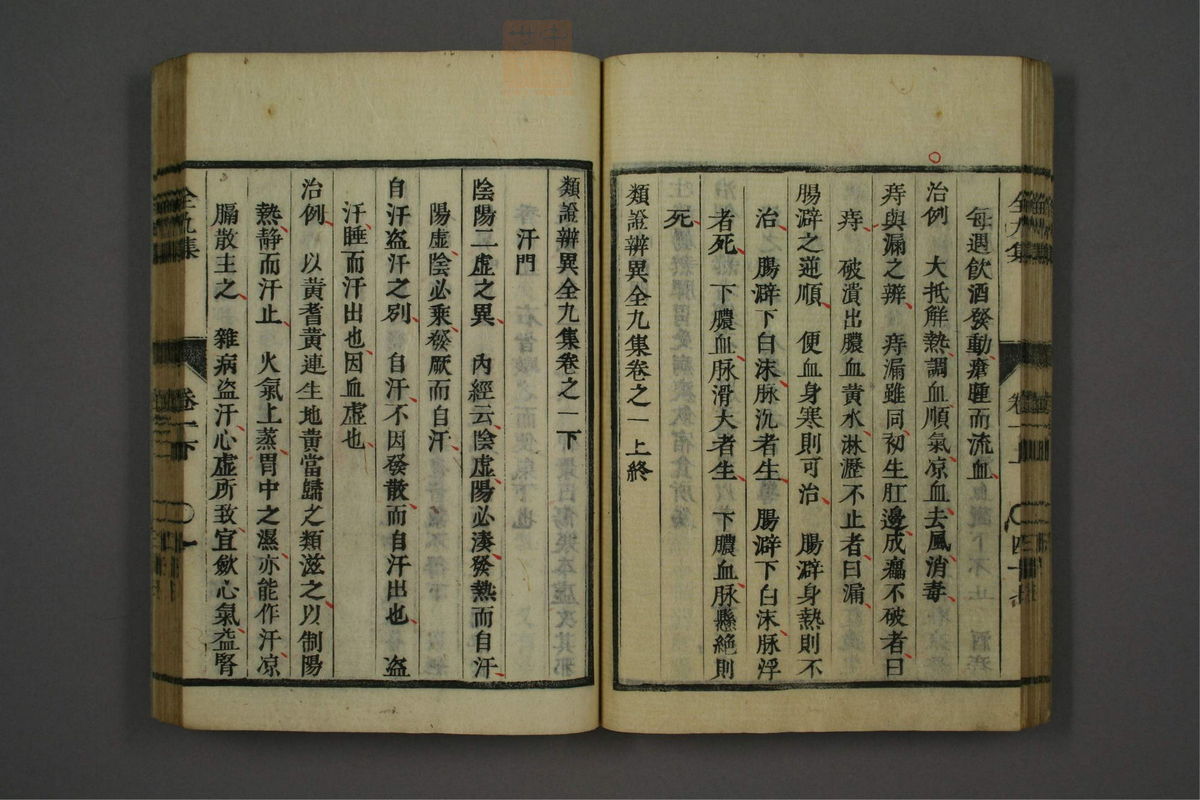 每遇飲酒發動瘡腫而流血
治例　大抵解熱調血順氣凉血去風消毒
痔與漏之辨　痔漏雖同初生肛邊成癟不破者曰
痔　破潰出膿血黃水淋瀝不止者曰漏
腸澼之逆順　便血身寒則可治　腸澼身熱則不
治　腸澼下白沫脉沉者生　腸澼下白沫脉浮
者死　下膿血脉滑大者生　下膿血脉懸絶則
死
類證辨異全九集卷之一上終
類證辨異全九集卷之一下
汗門
陰陽二虛之異　內經云陰虛陽必湊發熱而自汗
陽虛陰必乘發厥而自汗
自汗盗汗之別　自汗不因發散而自汗出也　盗
汗睡而汗出也因血虛也
治例　以黃耆黃連生地黃當歸之類滋之以制陽
熱静而汗止　火氣上蒸胃中之濕亦能作汗凉
膈散主之　雜病盗汗心虛所致宜歛心氣益腎
全九集
卷一上
全九集
卷一下